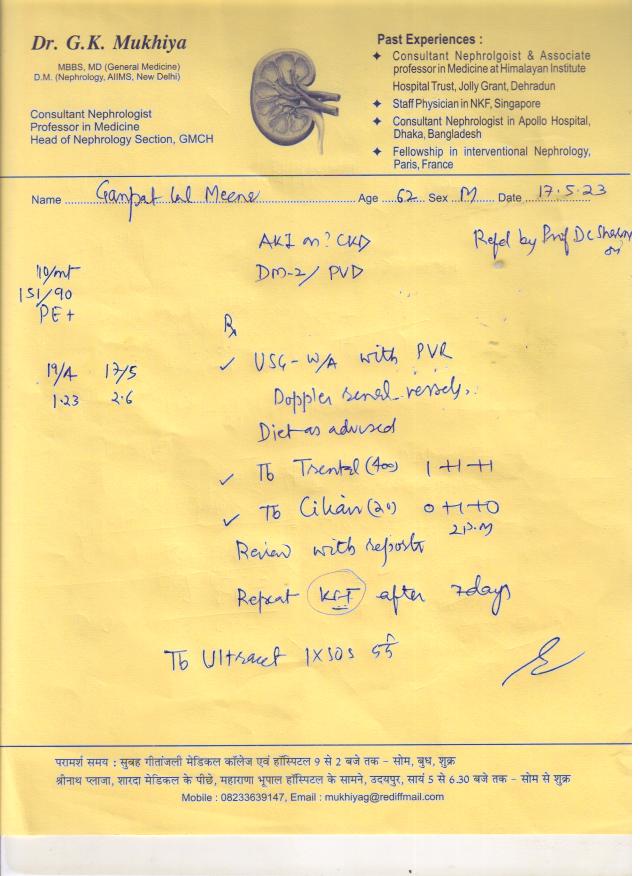 Dr. G.K. Mukhiya
MBBS, MD (General Medicine)
D.M. (Nephrology, AIIMS, New Delhi)
Consultant Nephrologist
Professor in Medicine
Head of Nephrology Section, GMCH
Past Experiences :
✦ Consultant Nephrolgoist & Associate
professor in Medicine at Himalayan Institute
Hospital Trust, Jolly Grant, Dehradun
✦ Staff Physician in NKF, Singapore
✦ Consultant Nephrologist in Apollo Hospital,
Dhaka, Bangladesh
✦ Fellowship in interventional Nephrology,
Paris, France
Name Ganpat Lal Meena Age 62 Sex M Date 17.5.23
AKI on ? CKD
Refd by Prof DC Sharma
DM-2/ PVD
151/90
PE+
Rx
✓ USG-W/A with PVR
19/4 17/5
1.23 2.6
Doppler renal vessels.
Diet as advised
✓ Tb Trental (400) 1+1+1
✓ Tb (20) 0+1+0
2 P.M
Review with reports
Repeat KFT after 7days
Tb Ultracet 1XSOS
परामर्श समय : सुबह गीतांजली मेडिकल कॉलेज एवं हॉस्पिटल 9 से 2 बजे तक – सोम, बुध, शुक्र
श्रीनाथ प्लाजा, शारदा मेडिकल के पीछे, महाराणा भूपाल हॉस्पिटल के सामने, उदयपुर, सायं 5 से 6.30 बजे तक – सोम से शुक्र
Mobile : 08233639147, Email : mukhiyag@rediffmail.com